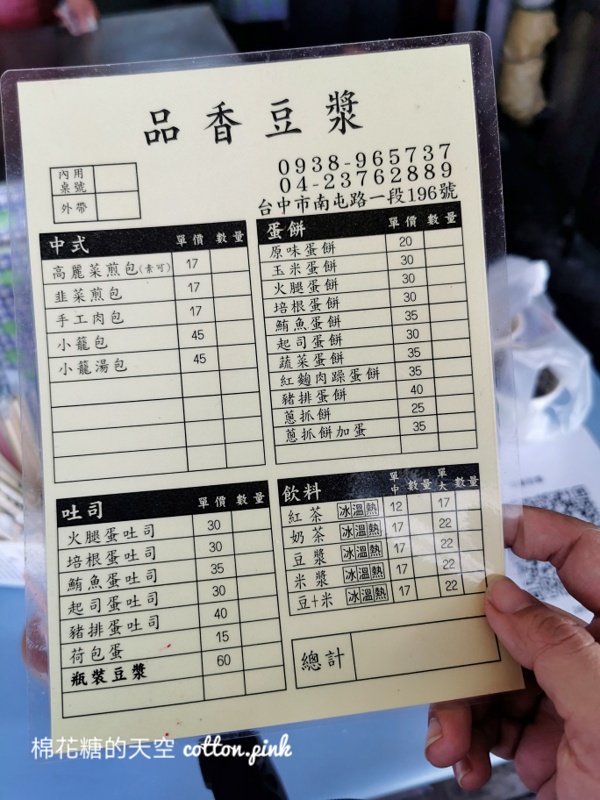 品香豆漿
內用桌號
外帶
0938-965737
04-23762889
台中市南屯路一段196號
中式 單價 數量
高麗菜煎包(素可) 17
韭菜煎包 17
手工肉包 17
小籠包 45
小籠湯包 45
蛋餅 單價 數量
原味蛋餅 20
玉米蛋餅 30
火腿蛋餅 30
培根蛋餅 30
鮪魚蛋餅 35
起司蛋餅 30
蔬菜蛋餅 35
紅麴肉躁蛋餅 35
豬排蛋餅 40
蔥抓餅 25
蔥抓餅加蛋 35
吐司 單價 數量
火腿蛋吐司 30
培根蛋吐司 30
鮪魚蛋吐司 35
起司蛋吐司 30
豬排蛋吐司 40
荷包蛋 15
瓶裝豆漿 60
飲料 單中 數量 單大 數量
紅茶 冰溫熱 12 17
奶茶 冰溫熱 17 22
豆漿 冰溫熱 17 22
米漿 冰溫熱 17 22
豆+米 冰溫熱 17 22
總計
棉花糖的天空 cotton.pink